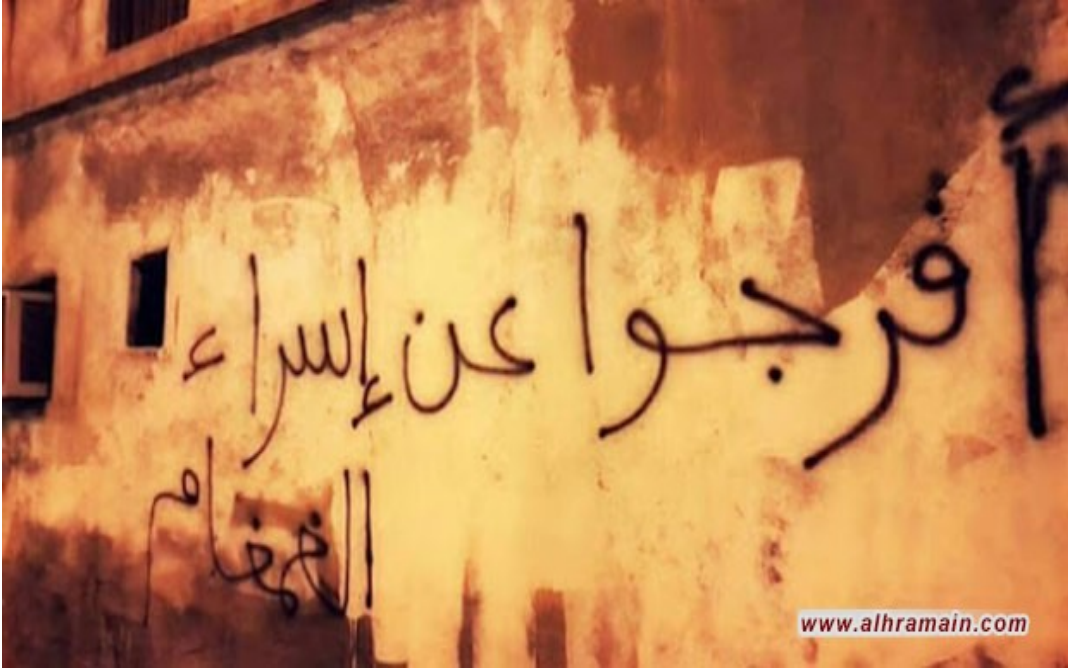 أفرجوا عن إسراء
الغمغام
www.alhramain.com